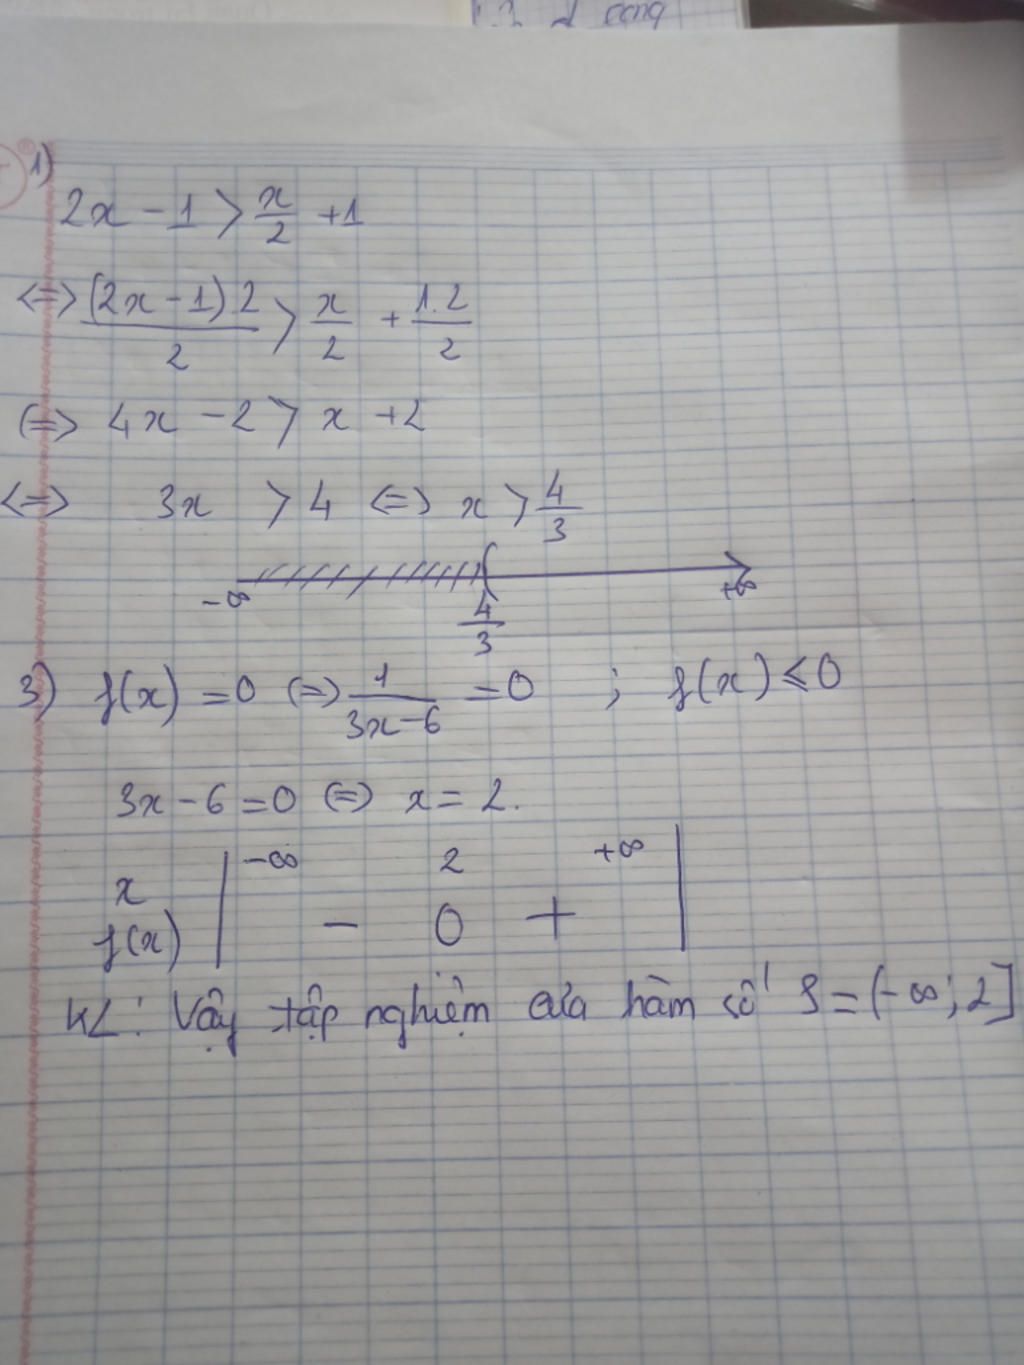 1)
2x - 1 > x/2 + 1
<=> (2x - 1) 2/2 > x/2 + 1.2/2
(=> 4x - 2 > x + 2
<=> 3x > 4 (=) x > 4/3
-∞ 4/3 +∞
3) f(x) = 0 (=) 1/3x - 6 = 0 ; f(x) ≤ 0
3x - 6 = 0 (=) x = 2.
x | -∞ 2 +∞
f(x) | - 0 + |
KL: Vậy tập nghiệm của hàm số S = (-∞; 2]